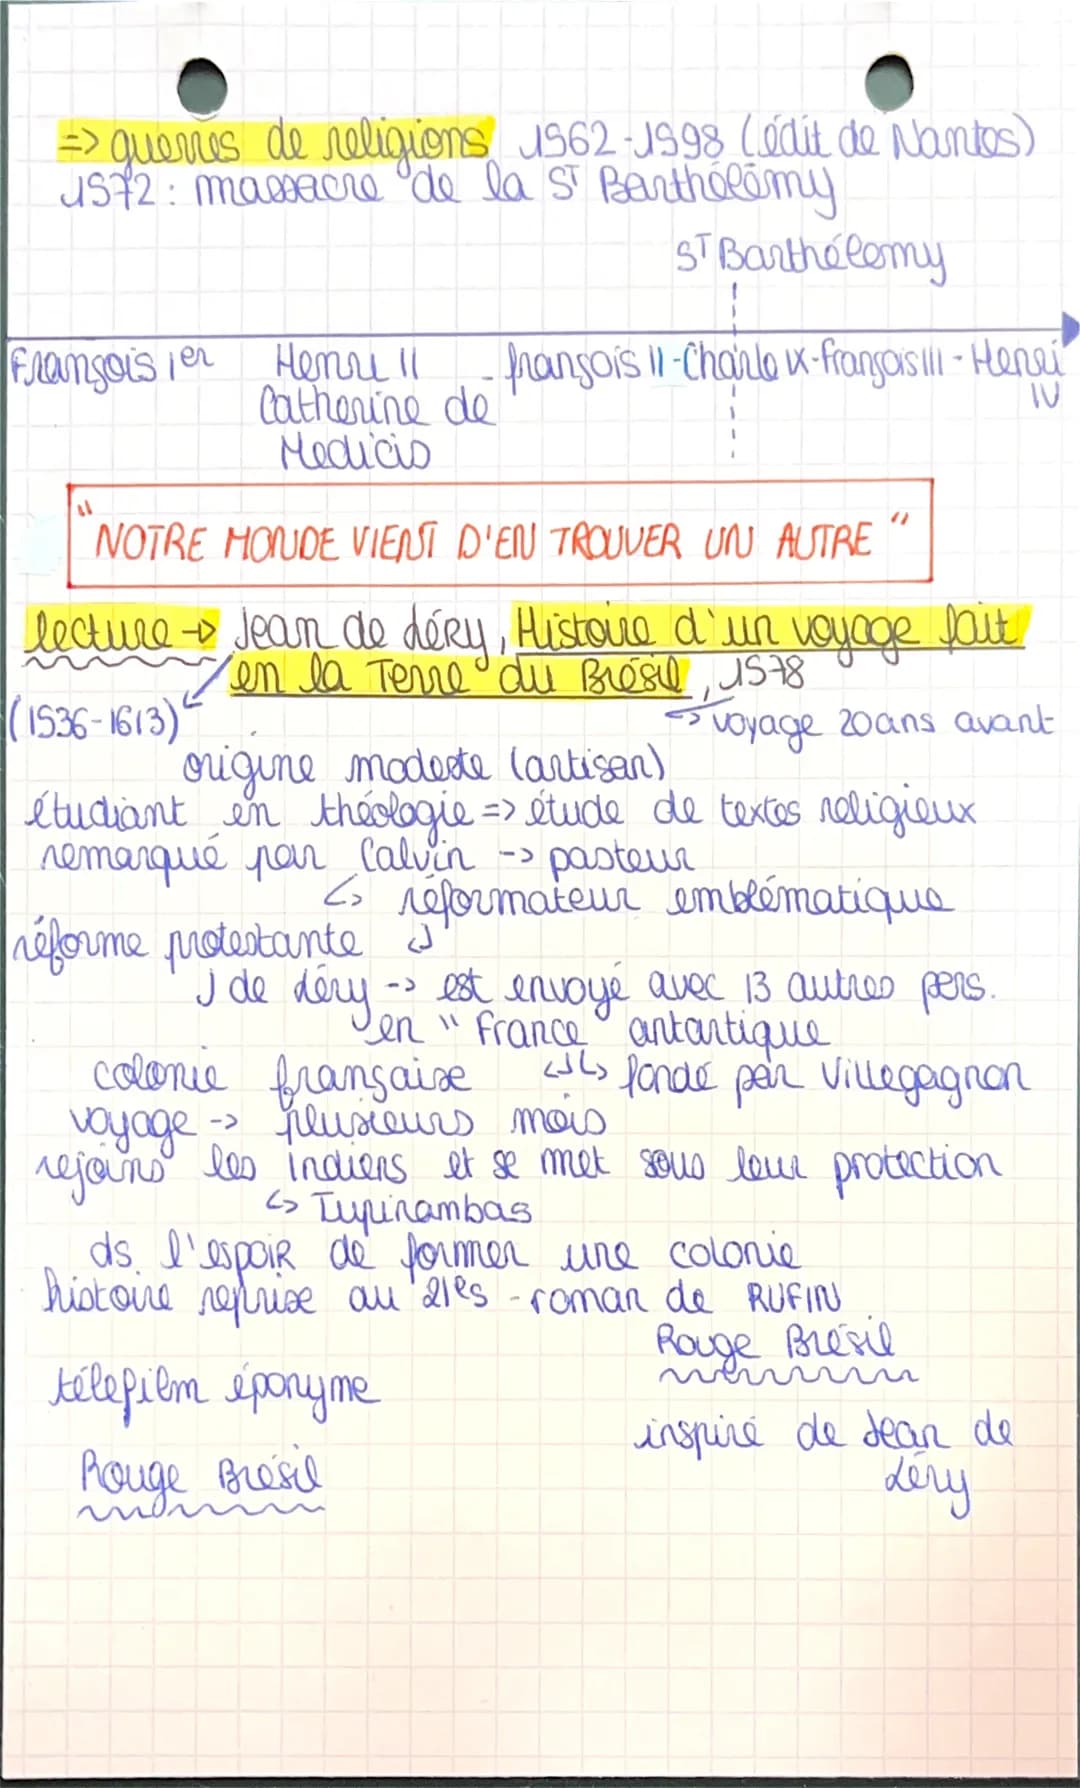 => guerres de religions 1562-1598 (édit de Nantes)
1572 : massacre de la ST Barthélémy
ST Barthélemy
François 1er Henri II - françois II - Charle IX - françois III - Henri IV
Catherine de
Medicis
"NOTRE MONDE VIENT D'EN TROUVER UN AUTRE"
lecture -> Jean de Léry, Histoire d'un voyage fait
en la Terre du Brésil, 1578
(1536-1613) ↳ voyage 20ans avant
origine modeste (artisan)
étudiant en théologie => étude de textes religieux
remarqué par Calvin -> pasteur
↳ réformateur emblématique
réforme protestante ↲
J de Léry -> est envoyé avec 13 autres pers.
en "France antartique
colonie française ↲↳ fondé par Villegagnon
voyage -> plusieurs mois
rejoins les indiens et se met sous leur protection
↳ Tupinambas
ds l'espoir de former une colonie
histoire reprise au 21es - roman de RUFIN
Rouge Brésil
télefilm éponyme
inspiré de Jean de
Léry
Rouge Brésil